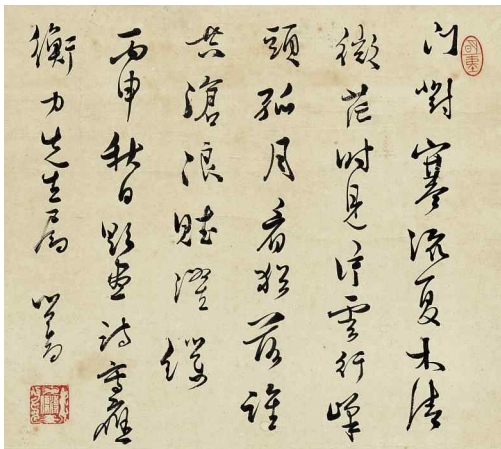 門對寒流夏木清
微茫時見雲行峰
頭孤月看猶落誰
共滄浪賦濯纓
丙申秋日題畫詩寫應
衡力先生屬 心畬